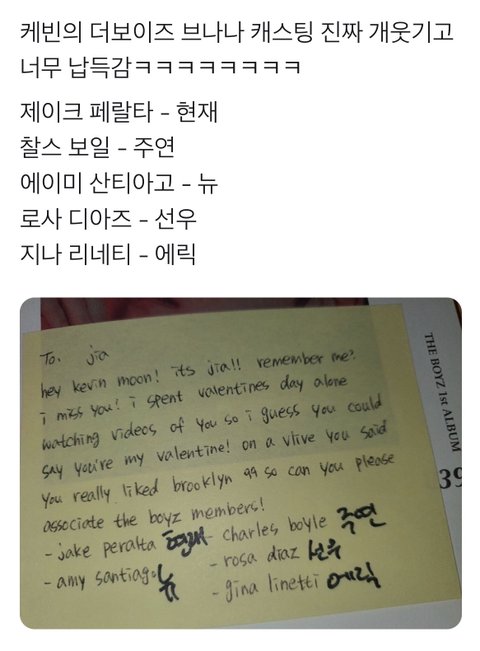 케빈의 더보이즈 브나나 캐스팅 진짜 개웃기고
너무 납득감ㅋㅋㅋㅋㅋㅋㅋㅋ
제이크 페랄타 - 현재
찰스 보일 - 주연
에이미 산티아고 - 뉴
로사 디아즈 - 선우
지나 리네티 - 에릭
To. jia
hey kevin moon! its jia!! remember me?
i miss you! i spent valentines day alone
watching videos of you so i guess you could
say you're my valentine! on a vlive you said
you really liked brooklyn 99 so can you please
associate the boyz members!
- jake peralta 현재 - charles boyle 주연
- amy santiago 뉴 - rosa diaz 선우
- gina linetti 에릭
THE BOYZ 1st ALBUM
39